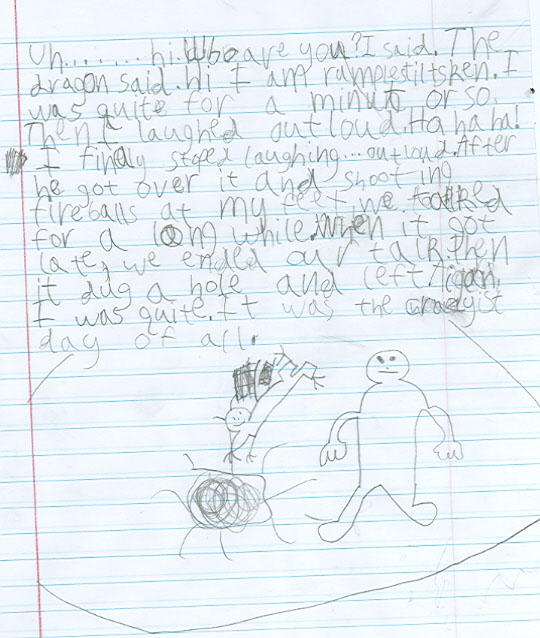 Uh....... hi. Who are you? I said. The
dragon said. hi I am rumplestiltsken. I
was quite for a minute or so.
Then I laughed out loud. Ha ha ha!
I finaly stoped laughing... out loud. After
he got over it and shooting
fireballs at my feet, we talked
for a long while. When it got
late, we ended our talk. then
it dug a hole and left. Again,
I was quite. It was the crazyist
day of all.